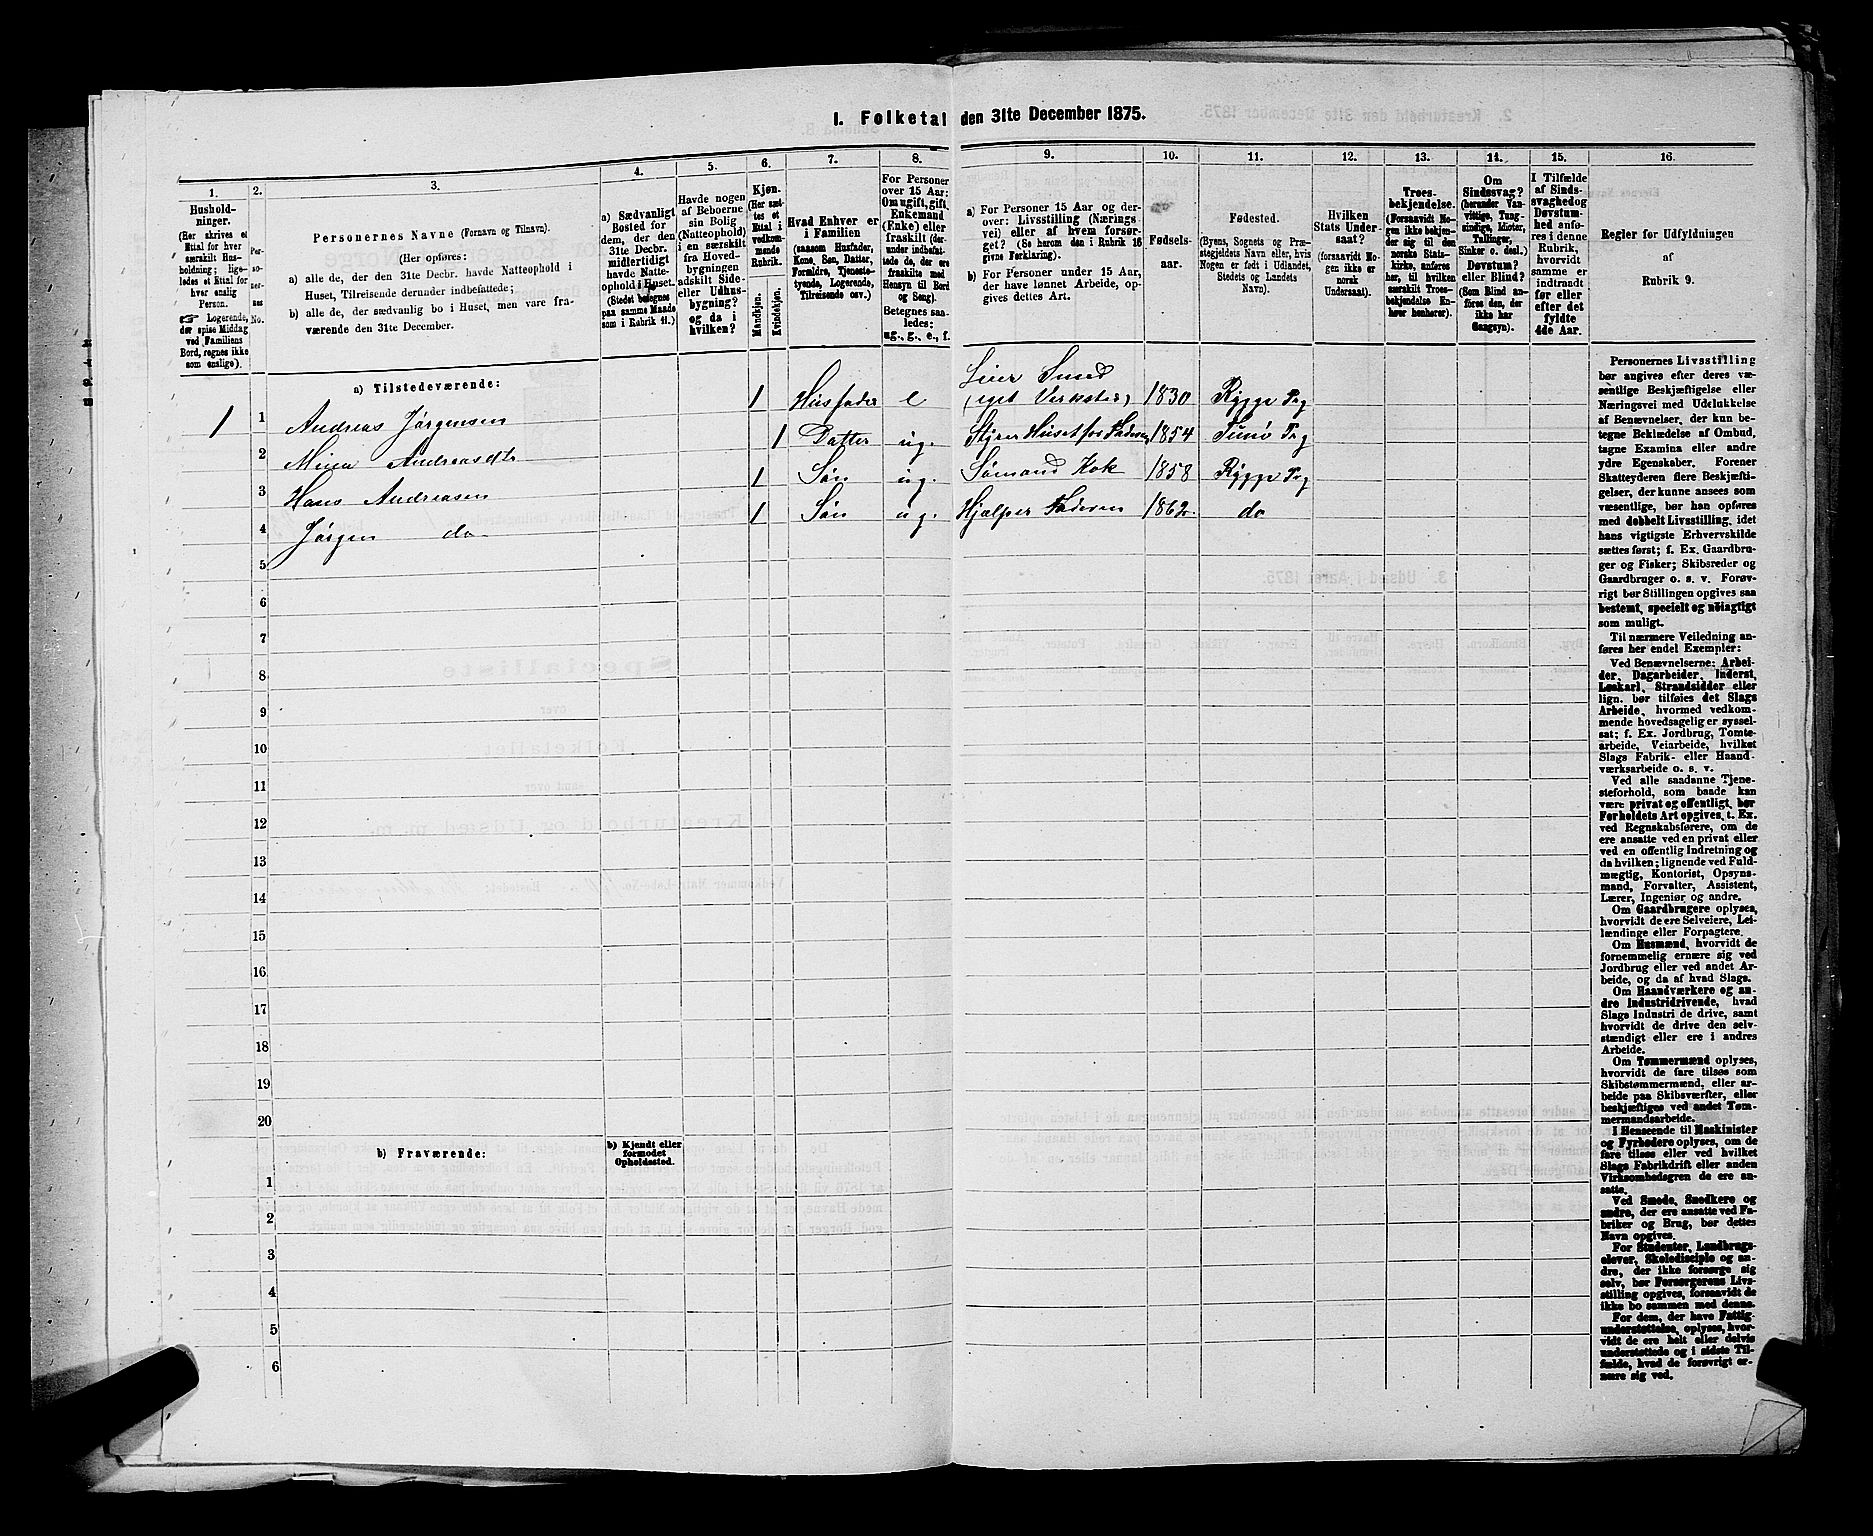 I. Folketal den 31te December 1875.
1.
Hushold-
ninger.
(Her skrives et
Ettal for hver
særskilt Hus-
holdning; lige-
ledes et Ettal for
hver enslig
Person.
Logerende,
der spise Middag
ved Familiens
Bord, regnes ikke
som enslige).
2.
Per-
so-
ner-
nes
No.
3.
Personernes Navne (Fornavn og Tilnavn).
(Her opføres:
a) alle de, der den 31te Decbr. havde Natteophold i
Huset, Tilreisende derunder indbefattede;
b) alle de, der sædvanlig bo i Huset, men vare fra-
værende den 31te December.
4.
a) Sædvanligt
Bosted for
dem, der den
31te Decbr.
midlertidigt
havde Natte-
ophold i Huset.
(Stedet betegnes
paa samme Maade
som i Rubrik 11.)
5.
Havde nogen
af Beboerne
sin Bolig
(Natteophold)
i en særskilt
fra Hoved-
bygningen
adskilt Side-
eller Udhus-
bygning?
og da i
hvilken?
6.
Kjøn.
(Her sæt-
tes et
Ettal i
vedkom-
mende
Rubrik.
Mandkjøn.
Kvindekjøn.
7.
Hvad Enhver er
i Familien
(saasom Husfader,
Kone, Søn, Datter,
Forældre, Tjeneste-
tyende, Logerende,
Tilreisende osv.)
8.
For Personer
over 15 Aar:
Om ugift, gift,
Enkemand
(Enke) eller
fraskilt (der-
under indbefat-
tede de, der ere
fraskilte med
Hensyn til Bord
og Seng).
Betegnes saa-
ledes:
ug., g., e., f.
9.
a) For Personer 15 Aar og der-
over: Livsstilling (Nærings-
vei) eller af hvem forsør-
get? (Se herom den i Rubrik 16
givne Forklaring).
b) For Personer under 15 Aar,
der have lønnet Arbeide, op-
gives dettes Art.
10.
Fødsels-
aar.
11.
Fødested.
(Byens, Sognets og Præ-
stegjeldets Navn eller, hvis
Nogen er født i Udlandet,
Stedets og Landets
Navn).
12.
Hvilken
Stats Under-
saat?
(forsaavidt No-
gen ikke er
norsk
Undersaat).
13.
Troes-
bekjendelse.
(Forsaavidt No-
gen ikke bekjen-
der sig til den
norske Stats-
kirke, anføres
her, til hvilken
særskilt Troes-
bekjendelse En-
hver henhører).
14.
Om
Sindssvag?
(herunder Van-
vittige, Tung-
sindige, Idioter,
Tullinger,
Sinker o. desl.)
Døvstum?
eller Blind?
(Som Blind an-
føres den, der
ikke har
Gangsyn).
15.
I Tilfælde
af Sinds-
svaghed og
Døvstum-
hed anfø-
res i denne
Rubrik,
hvorvidt
samme er
indtraadt
før eller
efter det
fyldte
4de Aar.
16.
Regler for Udfyldningen
af
Rubrik 9.
a) Tilstedeværende:
1 1 Andreas Jørgensen 1 Husfader e Leier Smed (eget Verksted) 1830 Rygge Prg
2 Mina Andreasdtr 1 Datter ug. Styrer Huset for Faderen 1854 Tunø Prg
3 Hans Andreasen 1 Søn ug. Sømand Kok 1858 Rygge Prg
4 Jørgen do 1 Søn ug. Hjælper Faderen 1862 do
5
6
7
8
9
10
11
12
13
14
15
16
17
18
19
20
b) Fraværende:
b) Kjendt eller
formodet
Opholdssted.
1
2
3
4
5
6
Personernes Livsstilling
bør angives efter deres væ-
sentlige Beskjæftigelse eller
Næringsvei med Udelukkelse
af Benævnelser, der kun be-
tegne Beklædelse af Ombud,
tagne Examina eller andre
ydre Egenskaber. Forener
Skatteyderen flere Beskjæfti-
gelser, der kunne ansees som
væsentlige, bør han opføres
med dobbelt Livsstilling, idet
hans vigtigste Erhvervskilde
sættes først; f. Ex. Gaardbru-
ger og Fisker; Skibsreder og
Gaardbruger o. s. v. Forøv-
rigt bør Stillingen opgives saa
bestemt, specielt og nøiagtigt
som muligt.
Til nærmere Veiledning an-
føres her endel Exempler:
Ved Benævnelserne: Arbei-
der, Dagarbeider, Inderst,
Løskarl, Strandsidder eller
lign. bør tilføies det Slags
Arbeide, hvormed vedkom-
mende hovedsagelig er syssel-
sat; f. Ex. Jordbrug, Tomte-
arbeide, Veiarbeide, hvilket
Slags Fabrik- eller Haand-
værksarbeide o. s. v.
Ved alle saadanne Tjene-
steforhold, som baade kan
være privat og offentligt, bør
Forholdets Art opgives, t. Ex.
ved Regnskabsførere, om de
ere ansatte ved en privat eller
ved en offentlig Indretning og
da hvilken; lignende ved Fuld-
mægtig, Kontorist, Opsyns-
mand, Forvalter, Assistent,
Lærer, Ingeniør og andre.
Om Gaardbrugere oplyses,
hvorvidt de ere Selveiere, Lei-
lændinge eller Forpagtere.
Om Husmænd, hvorvidt de
fornemmelig ernære sig ved
Jordbrug eller ved andet Ar-
beide, og da af hvad Slags.
Om Haandværkere og an-
dre Industridrivende, hvad
Slags Industri de drive, samt
hvorvidt de drive den selv-
stændigt eller ere i andres
Arbeide.
Om Tømmermænd oplyses,
hvorvidt de fare tilsøs som
Skibstømmermænd, eller ar-
beide paa Skibsværfter, eller
beskjæftiges ved andet Tøm-
mermandsarbeide.
I Henseende til Maskinister
og Fyrbødere oplyses, om de
fare tilsøs eller ved hvilket
Slags Fabrikdrift eller anden
Virksomhedsgren de ere an-
satte.
Ved Smede, Snedkere og
andre, der ere ansatte ved Fa-
briker og Brug, bør dettes
Navn opgives.
For Studenter, Landbrugs-
elever, Skoledisciple og an-
dre, der ikke forsørge sig
selv, bør Forsørgerens Livs-
stilling opgives, forsaavidt de
ikke bo sammen med denne.
For dem, der have Fattig-
understøttelse, oplyses, hvor-
vidt de ere helt eller delvis
understøttede og i sidste Til-
fælde, hvad de forøvrigt er-
nære sig ved.